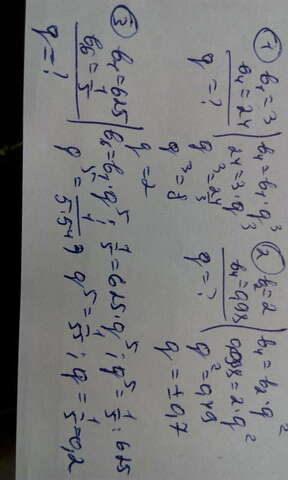 ① b₁ = 3
b₄ = 24
q = ?
b₄ = b₁ · q³
24 = 3 · q³
q³ = 24 : 3
q³ = 8
q = 2
② b₂ = 2
b₄ = 0,98
q = ?
b₄ = b₂ · q²
0,98 = 2 · q²
q² = 0,49
q = ± 0,7
③ b₁ = 625
b₆ = 1/5
q = ?
b₆ = b₁ · q⁵ ; 1/5 = 625 · q⁵ ; q⁵ = 1/5 : 625
q⁵ = 1/5·5⁴ ; q⁵ = 1/5⁵ ; q = 1/5 = 0,2